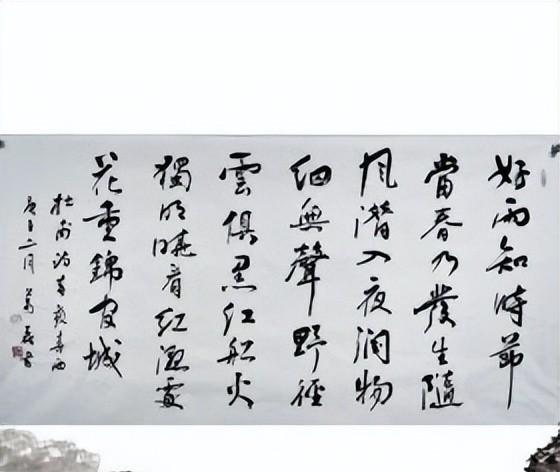 好雨知時節
當春乃發生隨
風潛入夜潤物
細無聲野徑
雲俱黑江船火
獨明曉看红濕處
花重錦官城
杜甫詩春夜喜雨
庚子二月